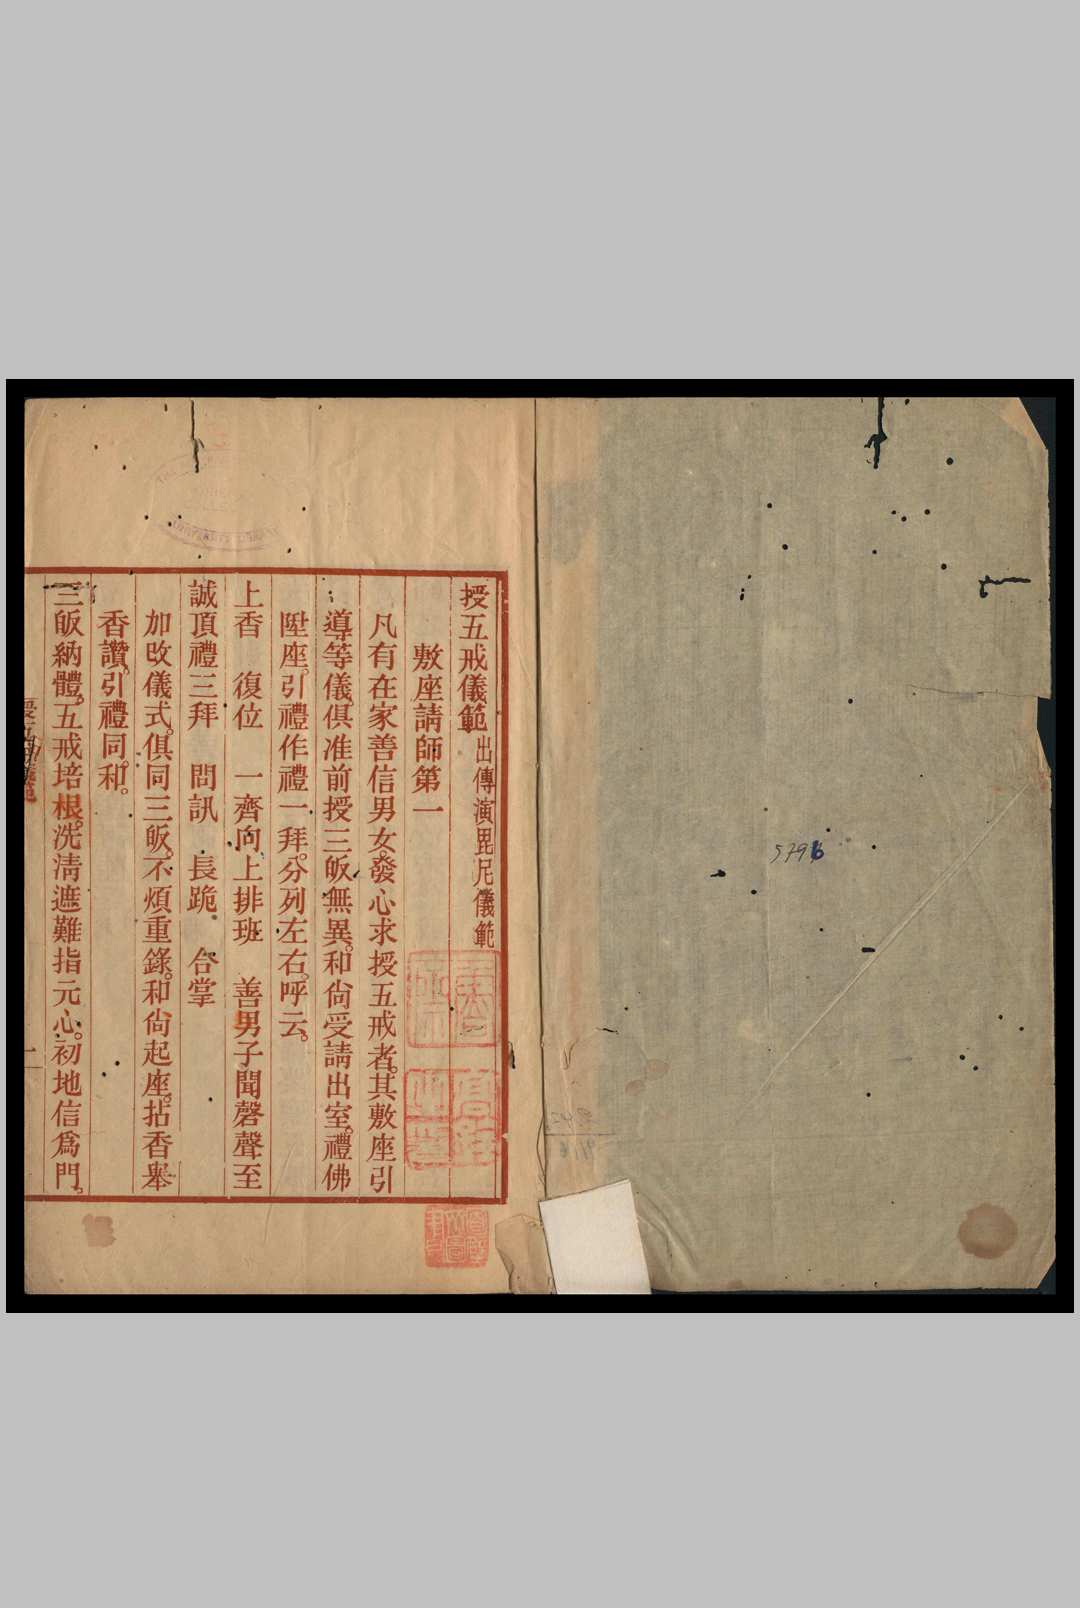 授五戒儀範出傳演毘尼儀範
敷座請師第一
凡有在家善信男女。發心求授五戒者。其敷座引
導等儀。俱准前授三皈無異。和尙受請出室。禮佛
陞座。引禮作禮一拜。分列左右。呼云。
上香　復位　一齊向上排班　善男子聞磬聲至
誠頂禮三拜　問訊　長跪　合掌
加改儀式。俱同三皈。不煩重錄。和尙起座。拈香舉
香讚。引禮同和。
三皈納體。五戒培根。洗淸遮難指元心。初地信爲門。
授五戒儀範
一
5796